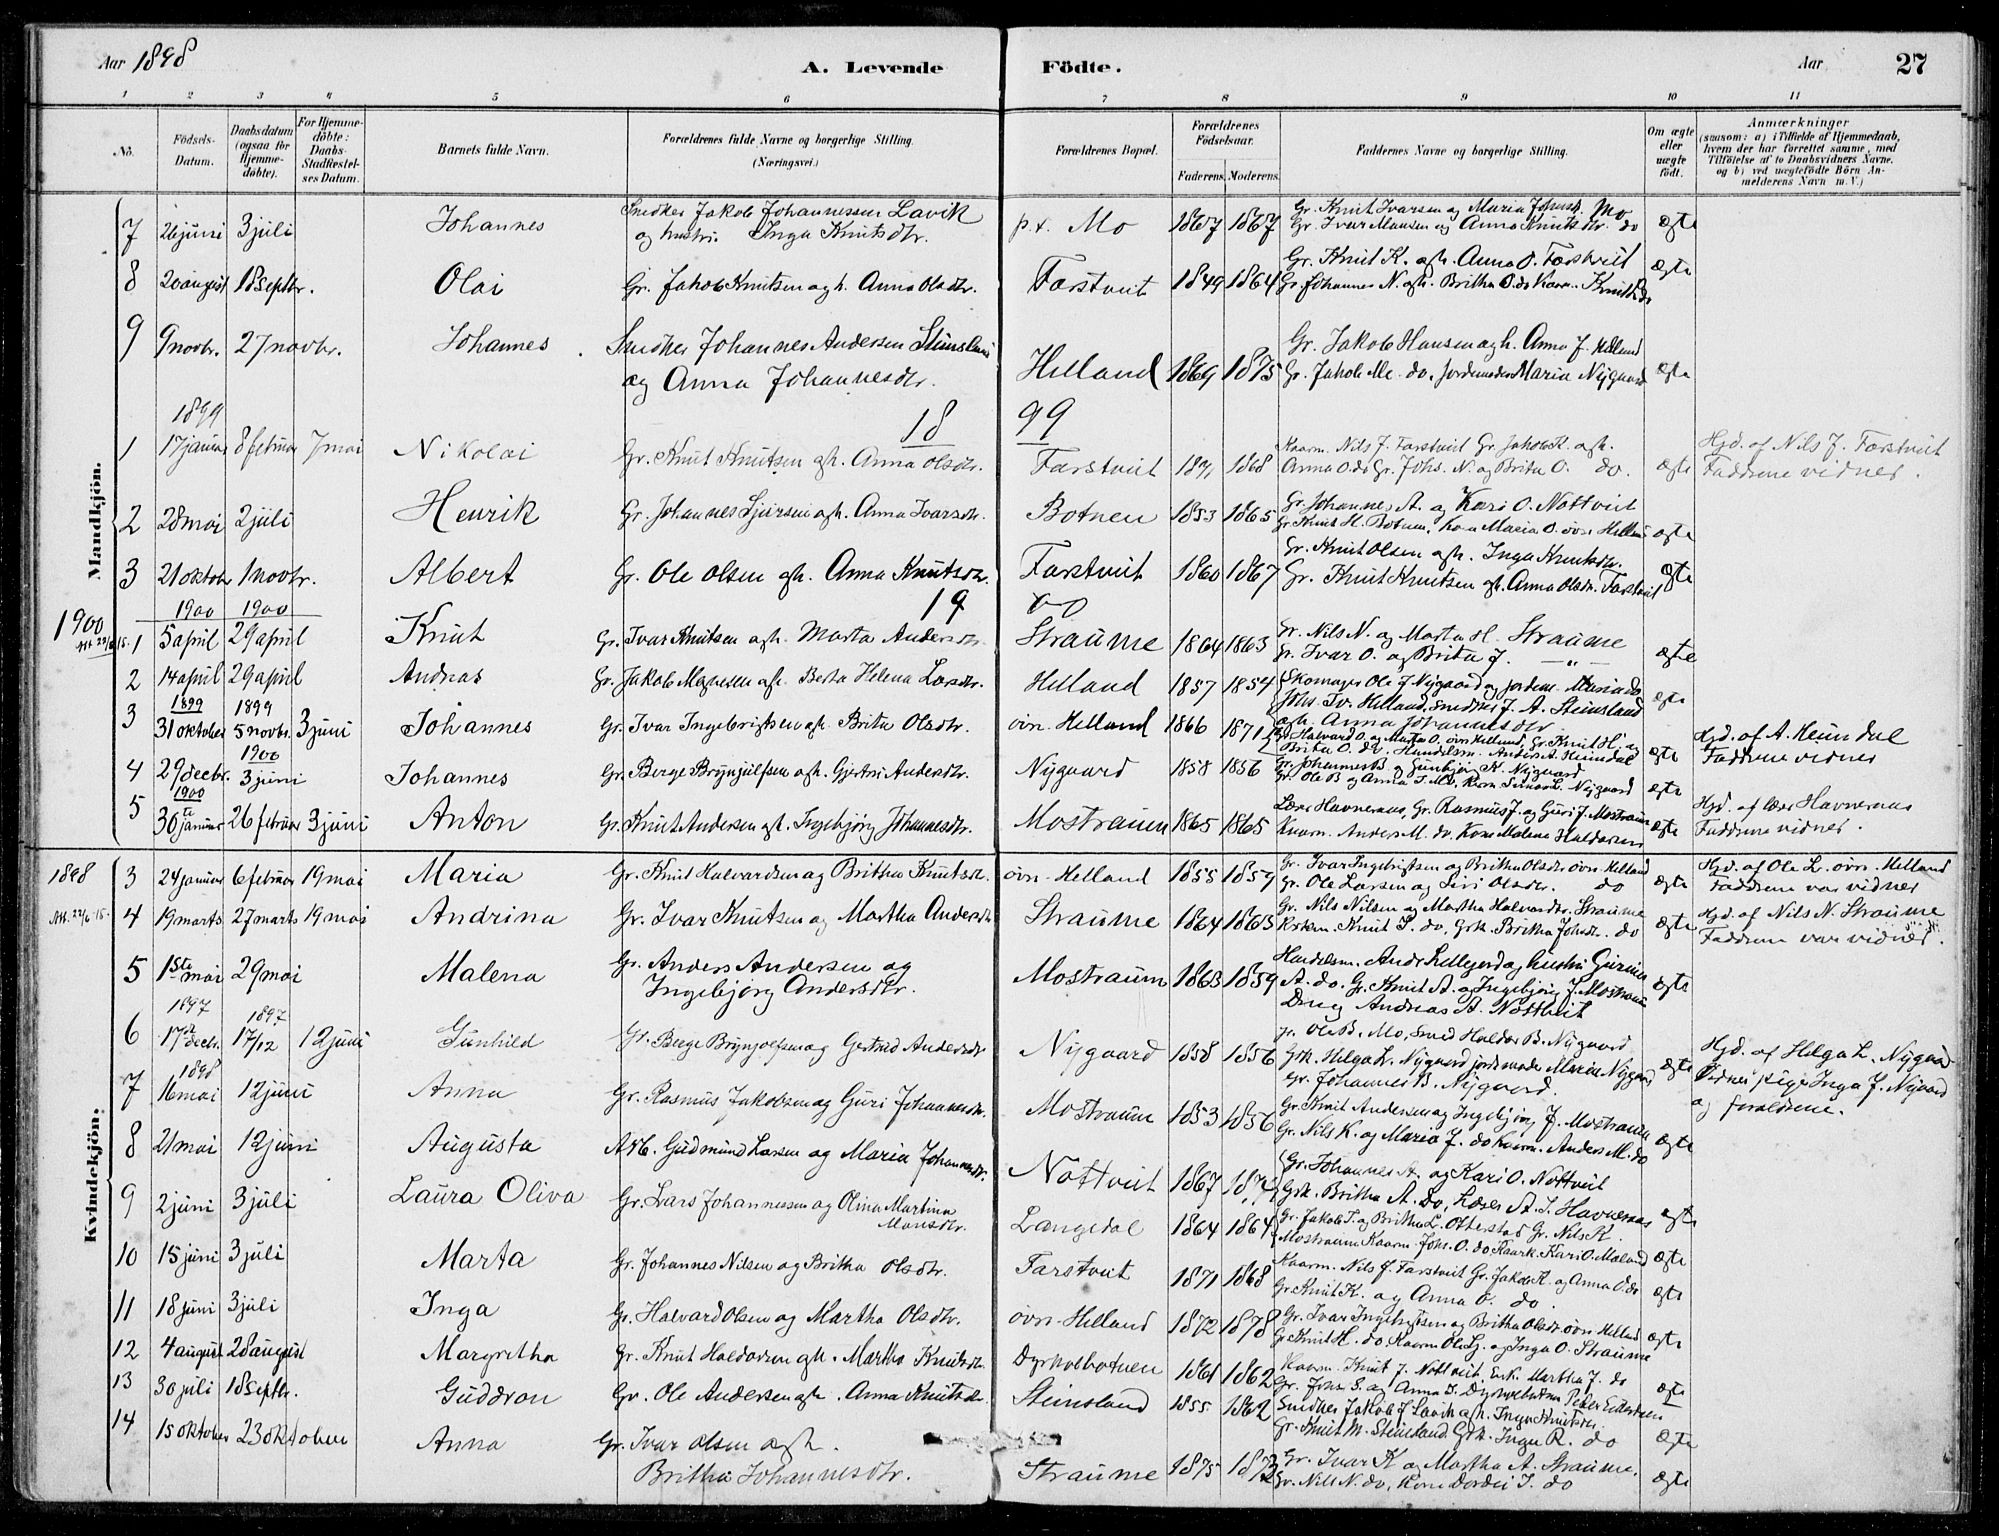 Aar 1898 A. Levende Födte. Aar 27
1 2 3 4 5 6 7 8 9 10 11
No. Födsels-Datum. Daabsdatum (ogsaa for Hjemmedöbte). For Hjemmedöbte: Daabs-Stadfæstelses Datum. Barnets fulde Navn. Forældrenes fulde Navne og borgerlige Stilling. (Næringsvei.) Forældrenes Bopæl. Forældrenes Födselsaar. Faderens. Moderens. Faddernes Navne og borgerlige Stilling. Om ægte eller uægte födt. Anmærkninger (saasom: a) i Tilfælde af Hjemmedaab, hvem der har forrettet samme, med Tilföielse af to Daabsvidners Navne. og b) ved uægtefödte Börn Anmelderens Navn m. V.)
Mandkjön.
7 26 juni 3 juli Johannes Snedker Jakob Johannessen Lavik p.t. Mo 1867 1867 Gr. Knut Ivarsen og Maria Johnsd. Mo ægte
og hustru Inga Knutsdtr. Gr. Ivar Monsen og Anna Knutsdtr. do
8 20 august 18 septbr. Olai Gr. Jakob Knutsen og h. Anna Olsdtr. Farstveit 1849 1864 Gr. Knut K. og h. Anna O. Farstveit ægte
Gr. Johannes N. og h. Britha O. do Kaarm. Knut do
9 9 novbr. 27 novbr. Johannes Snedker Johannes Andersen Stensland Helland 1869 1875 Gr. Jakob Hansen og h. Anna J. Helland ægte
og Anna Johannesdtr. Gr. Jakob M. do, Jordemoder Maria Nygaard
1899 18 99
1 17 januar 8 februar 7 mai Nikolai Gr. Knut Knutsen og h. Anna Olsdtr. Farstveit 1871 1868 Kaarm. Nils J. Farstveit Gr. Jakob K. og h. ægte Hjd. af Nils J. Farstveit
Anna O. do Gr. Johs. N. og Brita O. do. Faddrene vidner.
2 28 mai 2 juli Henrik Gr. Johannes Sjursen og h. Anna Ivarsdtr. Botnen 1853 1865 Gr. Johannes A. og Kari O. Nottveit ægte
Gr. Knut H. Botnen, Kone Maria O. övr. Helland
3 21 oktobr 1 novbr. Albert Gr. Ole Olsen og h. Anna Knutsdtr. Farstveit 1860 1867 Gr. Knut Olsen og h. Inga Knutsdtr. ægte
Gr. Knut Knutsen og h. Anna Olsdtr. Farstveit
1900 1900 1900 19 00
1 5 april 29 april Knut Gr. Ivar Knutsen og h. Marta Andersdtr. Straume 1864 1863 Gr. Nils N. og Marta H. Straume ægte
Gr. Ivar O. og Brita J. — " —
2 14 april 29 april Andreas Gr. Jakob Monsen og h. Berta Helena Larsdtr. Helland 1857 1854 Skomager Ole J. Nygaard og jordem. Maria do ægte
Johs. Iv. Helland, snedker J. A. Steinsland
og h. Anna Johannesdtr.
1899 1899
3 31 oktober 5 novbr. 3 juni Johannes Gr. Ivar Ingebrigtsen og h. Brita Olsdtr. övr. Helland 1866 1871 Gr. Halvard O. og Marta O. övr. Helland, Gr. Knut H. og ægte Hjd. af A. Heimdal
Brita O. do, Handelsm. Anders A. Heimdal Faddrene vidner
1900
4 29 decbr. 3 juni Johannes Gr. Berge Brynjulfsen og h. Gjertru Andersdtr. Nygaard 1858 1856 Gr. Johannes B. og Gunbjør K. Nygaard ægte
Gr. Ole B og Anna J. Mo, Kaarm. Simon L. Nygaard
1900
5 30te januar 26 februar 3 juni Anton Gr. Knut Andersen og h. Ingebjørg Johannesdtr. Mostraum 1865 1865 Lærer Havneraas, Gr. Rasmus J. og Guri J. Mostraum ægte Hjd. af lærer Havneraas
Kaarm. Anders M. do, Kone Malene Haldorsen Faddrene vidner.
Kvindekjön.
1898 3 24 januar 6 februar 19 mai Maria Gr. Knut Halvardsen og Britha Knutsdtr. övr. Helland 1855 1859 Gr. Ivar Ingebrigtsen og Britha Olsdtr. övr. Helland ægte Hjd. af Ole L. övr. Helland
Gr. Ole Larsen og Siri Olsdtr. do Faddrene var vidner
4 19 marts 27 marts 19 mai Andrina Gr. Ivar Knutsen og Martha Andersdtr Straume 1864 1863 Gr. Nils Nilsen og Martha Halvardsdtr. Straume ægte Hjd. af Nils N. Straume
Knut I. do, Grk. Britha Johsdtr. do Faddrene var vidner.
5 1ste mai 29 mai Malena Gr. Anders Andersen og Mostraum 1863 1859 Handelsm. Andr. Lillejord og hustru Gurina ægte
Ingebjørg Andersdtr. A. do. Gr. Knut A. og Ingebjørg J. Mostraum
Dreng Andreas A. Nottveit
1897 1897
6 17de decbr. 17/12 12 juni Gunhild Gr. Berge Brynjolfsen og Gertrud Andersdtr Nygaard 1858 1856 Gr. Ole B. Mo, Smed Haldor B. Nygaard ægte Hjd. af Helga L. Nygaard
Grk. Helga L. Nygaard jordemoder Maria Nygaard Vidner pige Inga J. Nygaard
Gr. Johannes B. Nygaard. og forældrene.
1898
7 16 mai 12 juni Anna Gr. Rasmus Jakobsen og Guri Johannesdtr. Mostraum 1853 1856 Gr. Knut Andersen og Ingebjørg J. Mostraum ægte
Gr. Nils K. og Maria J. do Kaarm. Anders M. do
8 21 mai 12 juni Augusta Arb. Gudmund Larsen og Maria Johannesdtr. Nottveit 1867 187 Gr. Johannes A. og Kari O. Nottveit
Grk. Britha A. do, Lærer A. I. Havneraas ægte
9 2 juni 3 juli Laura Oliva Gr. Lars Johannessen og Olina Martina Langedal 1864 1864 Gr. Jakob T. og Britha L. Otterstad Gr. Nils K.
Monsdtr. Mostraum Kaarm. Johs. O. do Kaark. Kari O. Maland ægte
10 15 juni 3 juli Marta Gr. Johannes Nilsen og Britha Olsdtr. Farstveit 1871 1868 Kaarm. Nils J. Farstveit Gr. Jakob K. og Anna O. do ægte
Gr. Knut K. og Anna O. do.
11 18 juni 3 juli Inga Gr. Halvard Olsen og Martha Olsdtr. övr. Helland 1872 1878 Gr. Ivar Ingebrigtsen og Britha Olsdtr. övr. Helland ægte
Gr. Knut H. do Kaarm Ole L. og Inga O. Straume
12 4 august 28 august Margretha Gr. Knut Haldorsen og h. Martha Knutsdtr. Dyrkolbotnen 1861 1862 Kaarm. Knut J. Nottveit, Enk. Martha J. do ægte
Gr. Johs S. og Anna I. Dyrkolbotnen
13 30 juli 18 septbr. Guddron Gr. Ole Andersen og h. Anna Knutsd Steinsland 1855 1862 Snedker Jakob J. Lavik og h. Inga Knutsdtr. ægte
Gr. Knut M. Steinsland Grk. Inga R. do
14 15 oktober 23 oktober Anna Gr. Ivar Olsen og h. Straume 1875 1873 Gr. Ivar K og Martha A. Straume. ægte
Britha Johannesdtr. Gr. Nils N. do, Kone Dordei I. do